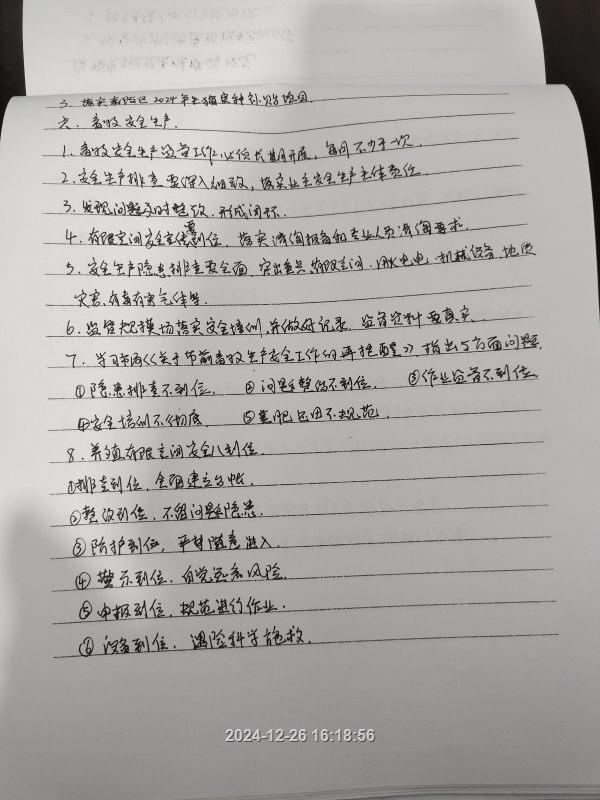 3. 落实高陵区2024年生猪良种补贴项目.
六. 畜牧安全生产.
1. 畜牧安全生产监管工作, 必须长期开展, 每月不少于一次.
2. 安全生产排查要深入细致, 落实业主安全生产主体责任.
3. 发现问题及时整改. 形成闭环.
4. 有限空间安全宣传要到位, 落实清淘报备和专业人员清淘要求.
5. 安全生产隐患排查要全面, 突出重点, 有限空间. 用火电电. 机械设备. 地质
灾害. 有毒有害气体等.
6. 监管规模场落实安全培训, 并做好记录. 监管资料要真实.
7. 学习市局《关于节前畜牧生产安全工作的再提醒》, 指出5方面问题.
①隐患排查不到位. ②问题整改不到位. ③作业监管不到位.
④安全培训不彻底. ⑤粪肥还田不规范.
8. 养殖有限空间安全八到位.
①排查到位, 全面建立台帐.
②整改到位, 不留问题隐患.
③防护到位, 严禁随意进入.
④警示到位. 自觉远离风险.
⑤申报到位, 规范进行作业.
⑥设备到位. 遇险科学施救.
2024-12-26 16:18:56